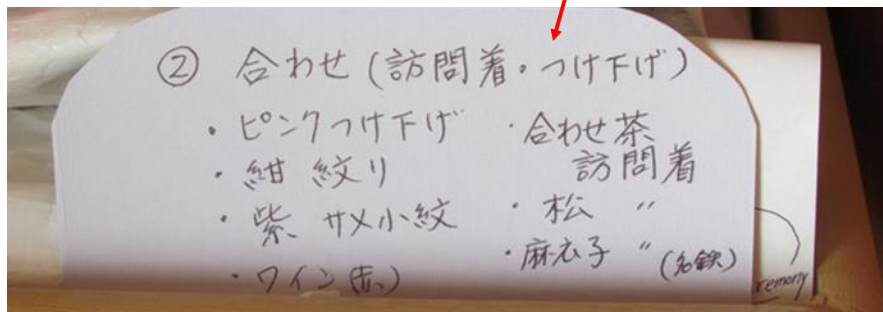 ② 合わせ(訪問着・つけ下げ)
・ピンクつけ下げ
・紺 絞り
・紫 サメ小紋
・ワイン(赤)
・合わせ茶
訪問着
・松 〃
・麻衣子 〃 (名鉄)
remony